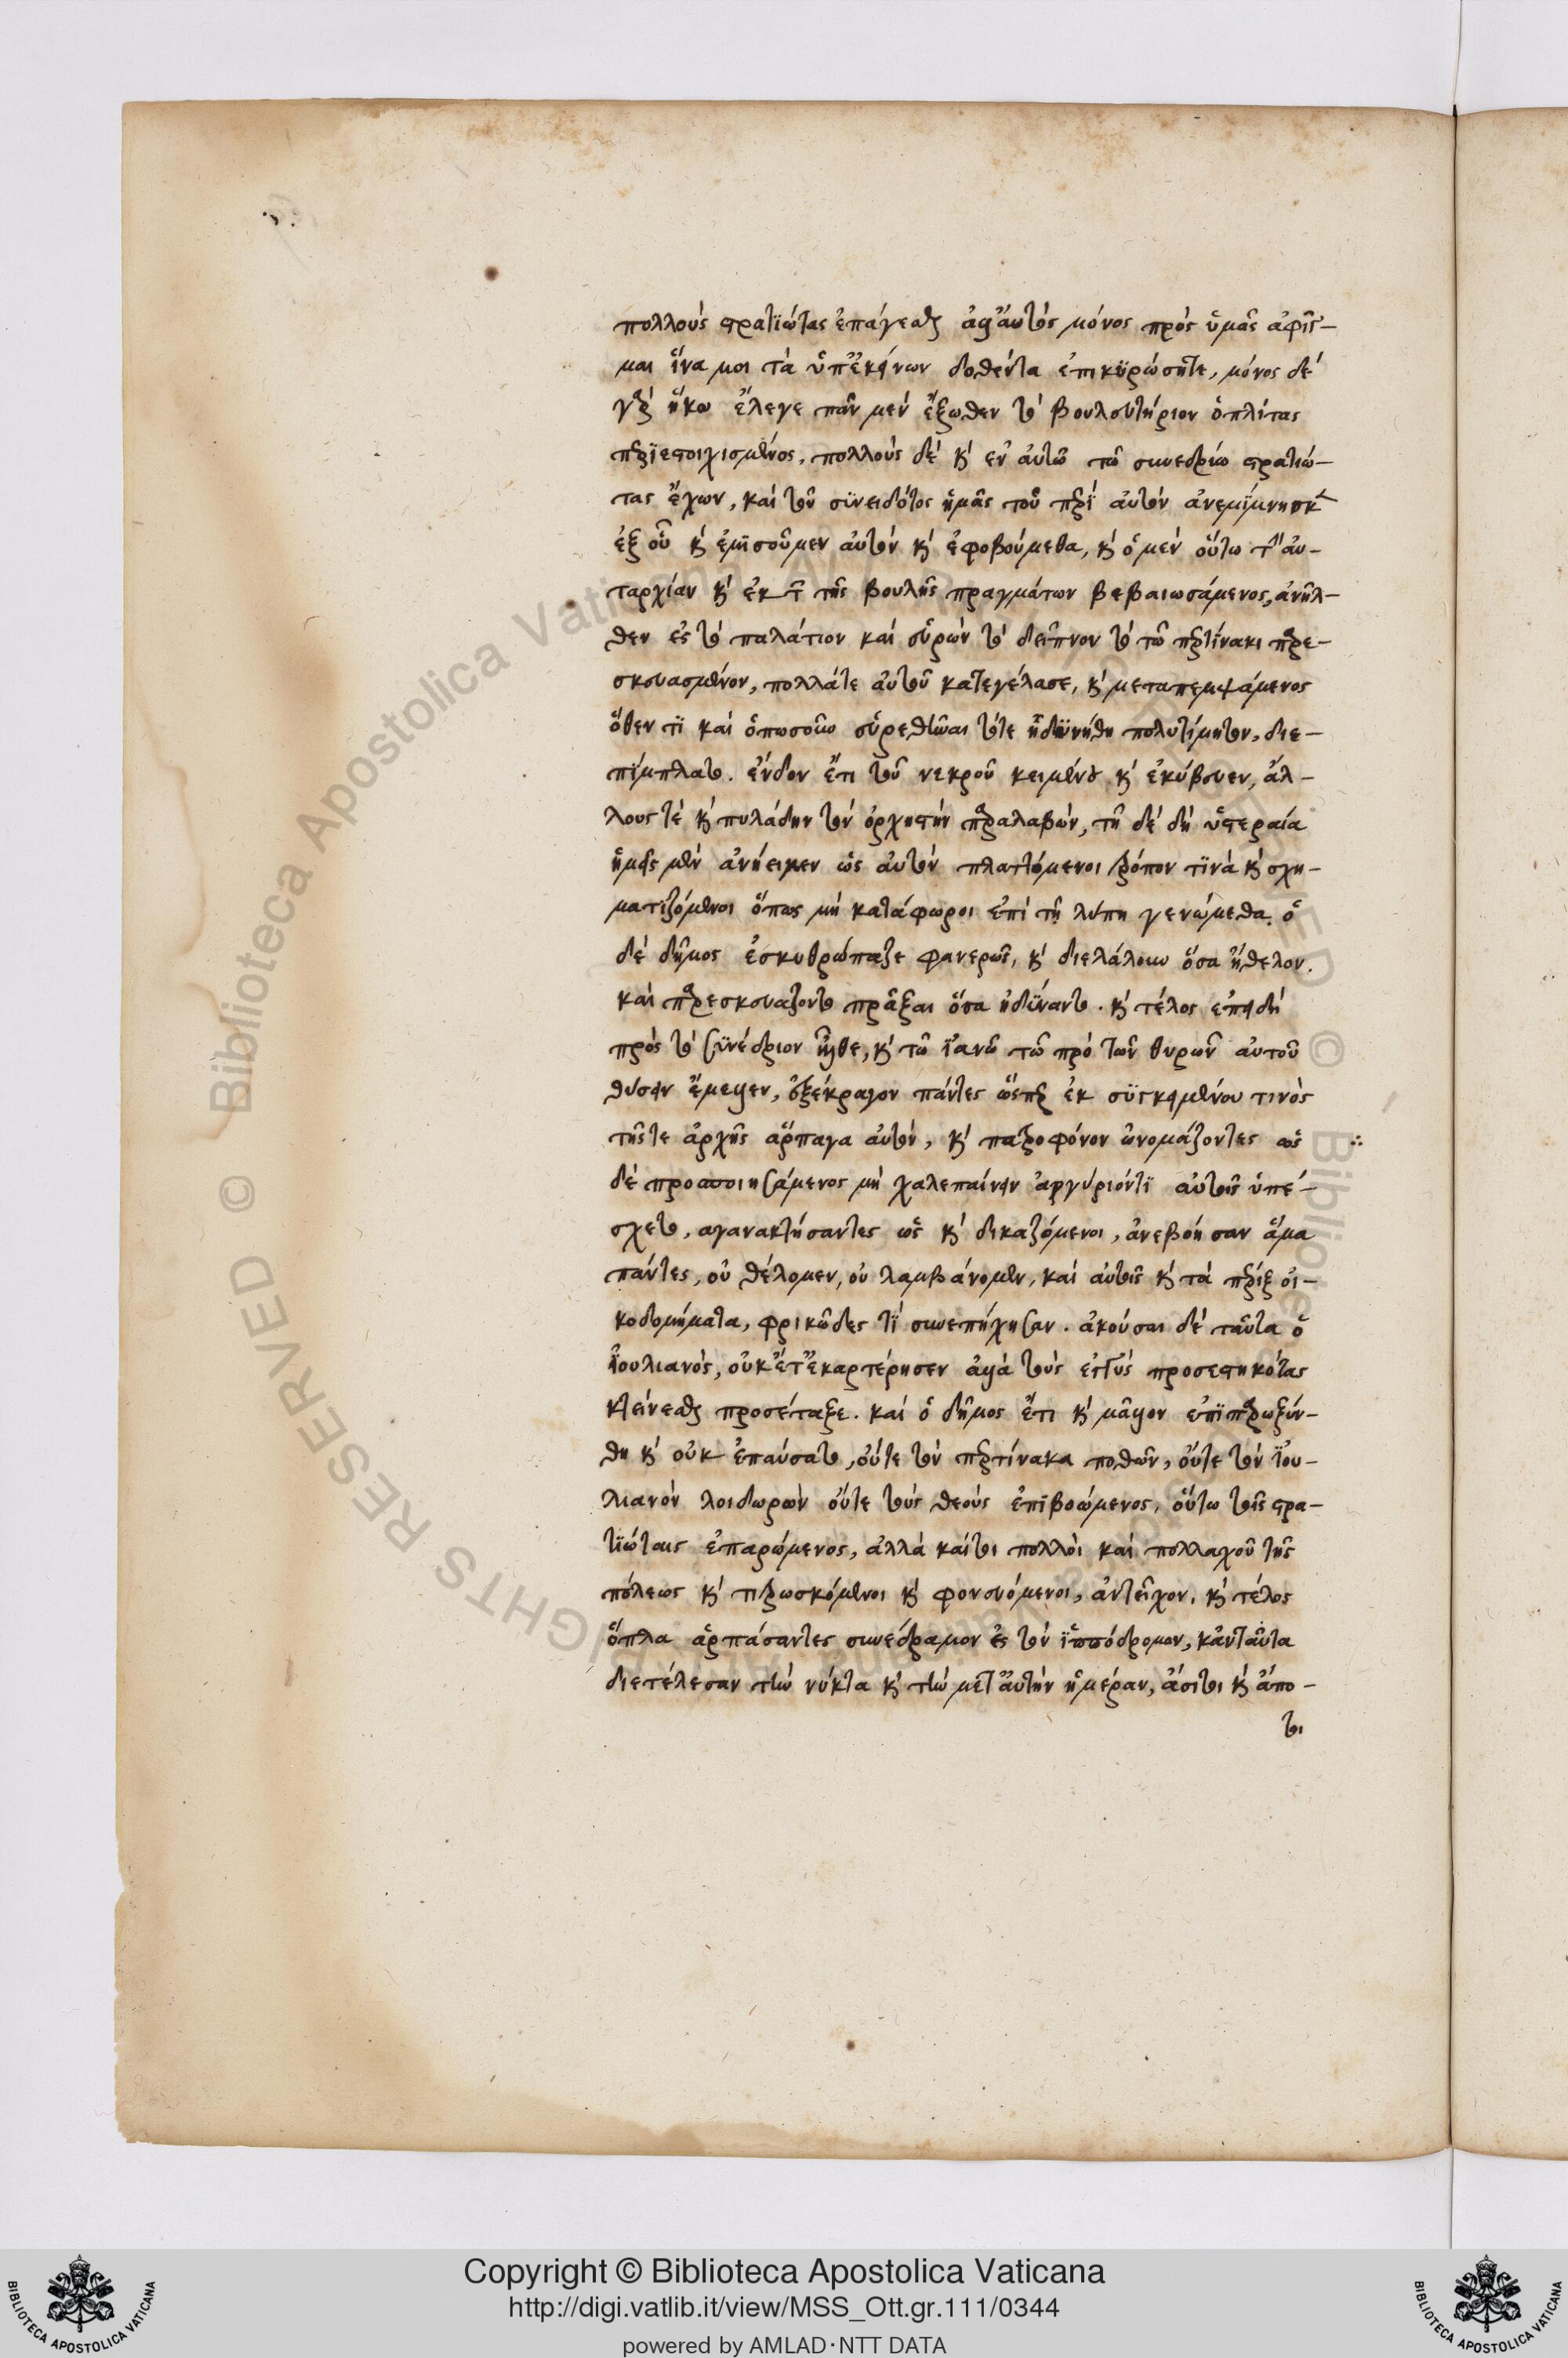 πολλοὺς στρατϊώτας ἐπάγεσθαι ἀλλ' αὐτὸς μόνος πρὸς ὑμᾶς ἀφῖγ-
μαι ἵνα μοι τὰ ὑπ' ἐκείνων δοθέντα ἐπικϋρώσητε, μόνος δὲ
γὰρ ἥκω ἔλεγε πᾶν μὲν ἔξωθεν τὸ βουλευτήριον ὁπλίταις
περϊεστοιχισμένος, πολλοὺς δὲ κ̀ ἐν αὐτῶ τῶ συνεδρίω στρατιώ-
τας ἔχων, καὶ τοῦ σϋνειδότος ἡμᾶς τοῦ περϊ αὐτὸν ἀνεμϊμνησκε
ἐξ οὗ κ̀ ἐμϊσοῦμεν αὐτὸν κ̀ ἐφοβούμεθα, κ̀ ὁ μὲν οὕτω τὴν αὐ-
ταρχίαν κ̀ ἐκ τῶν τῆς βουλῆς πραγμάτων βεβαιωσάμενος, ἀνῆλ-
θεν ἐς τὸ παλάτιον καὶ εὑρὼν τὸ δεῖπνον τὸ τῶ περτίνακι παρε-
σκευασμένον, πολλάτε αὐτοῦ κατεγέλασε, κ̀ μεταπεμψάμενος
ὅθεν τϊ καὶ ὁπωσοῦν εὑρεθῆναι τότε ἠδυνήθη πολυτίμητον, διε-
πίμπλατο. ἔνδον ἔτι τοῦ νεκροῦ κειμένου κ̀ ἐκύβευεν, ἄλ-
λους τὲ κ̀ πυλάδην τὸν ὀρχηστὴν παραλαβὼν, τῆ δὲ δὴ ὑστεραία
ἡμεῖς μὲν ἀνήειμεν ὡς αὐτὸν πλαττόμενοι τρόπον τϊνὰ κ̀ σχη-
ματιζόμενοι ὅπως μὴ κατάφωροι ἐπὶ τῆ λύπη γενώμεθα. ὁ
δὲ δῆμος ἐσκυθρώπαζε φανερῶς, κ̀ διελάλουν ὅσα ἤθελον.
καὶ παρεσκευάζοντο πρᾶξαι ὅσα ἠδύναντο. κ̀ τέλος ἐπειδὴ
πρὸς τὸ συνέδριον ἦλθε, κ̀ τῶ ϊανῶ τῶ πρὸ τῶν θυρῶν αὐτοῦ
θύσειν ἔμελλεν, ἐξέκραγον πάντες ὥσπερ ἐκ σϋγκειμένου τινὸς
τῆς τε ἀρχῆς ἅρπαγα αὐτὸν, κ̀ πατροφόνον ὠνομάζοντες ὡς
δὲ προσποιησάμενος μὴ χαλεπαίνειν ἀργύριόντϊ αὐτοῖς ὑπέ-
σχετο, αγανακτήσαντες ὡς κ̀ δικαζόμενοι, ἀνεβόησαν ἅμα
πάντες, οὐ θέλομεν, οὐ λαμβάνομεν, καὶ αὐτοῖς κ̀ τὰ πέριξ οἰ-
κοδομήματα, φρικῶδες τϊ συνεπήχησαν. ἀκούσαι δὲ ταῦτα ὁ
ϊουλιανὸς, οὐκ ἔτ' ἐκαρτέρησεν ἀλλὰ τοὺς ἐγγὺς προσεστηκότας
κτείνεσθαι προσέταξε. καὶ ὁ δῆμος ἔτι κ̀ μᾶλλον ἐπϊπαρωξύν-
θη κ̀ οὐκ ἐπαύσατο, οὔτε τὸν περτίνακα ποθῶν, οὔτε τὸν ϊου-
λιανὸν λοιδωρῶν οὔτε τοὺς θεοὺς ἐπϊβοώμενος, οὕτω τοῖς στρα-
τϊώταις ἐπαρώμενος, ἀλλὰ καίτοι πολλοὶ καὶ πολλαχοῦ τῆς
πόλεως κ̀ τιτρωσκόμενοι κ̀ φονευόμενοι, ἀντεῖχον, κ̀ τέλος
ὅπλα ἁρπάσαντες συνέδραμον ἐς τὸν ϊππόδρομον, κἀνταῦτα
διετέλεσαν τὴν νύκτα κ̀ τὴν μετ' αὐτὴν ἡμέραν, ἄσιτοι κ̀ ἄπο-
τοι
Copyright © Biblioteca Apostolica Vaticana
http://digi.vatlib.it/view/MSS_Ott.gr.111/0344
powered by AMLAD·NTT DATA